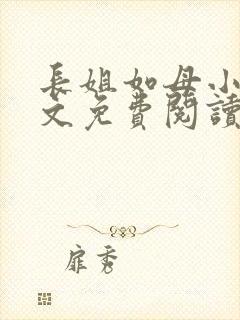 長姐如母小
文免費閱讀
扉秀